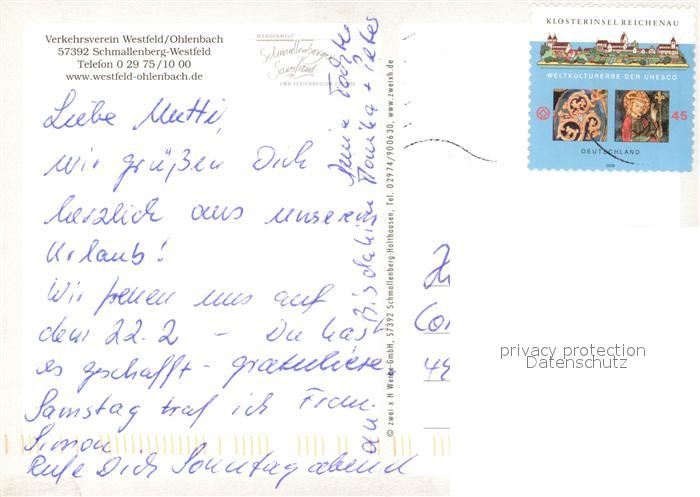 Verkehrsverein Westfeld/Ohlenbach
57392 Schmallenberg-Westfeld
Telefon 0 29 75/10 00
www.westfeld-ohlenbach.de
Schmallenberger
Sauerland
UND FERIENREGION
Liebe Mutti,
wir grüßen Dich
herzlich aus unserem
Urlaub!
Wir freuen uns auf
den 22.2 – Du hast
es geschafft - gratuliere
Samstag traf ich Frau
Simon
Rufe Dich Sonntag abend
an Bis dahin
Monika + Peter
© zwei x H Werbe-GmbH, 57392 Schmallenberg-Holthausen, Tel. 02974/900630, www.zweixh.de
KLOSTERINSEL REICHENAU
WELTKULTURERBE DER UNESCO
45
DEUTSCHLAND
2008
privacy protection
Datenschutz